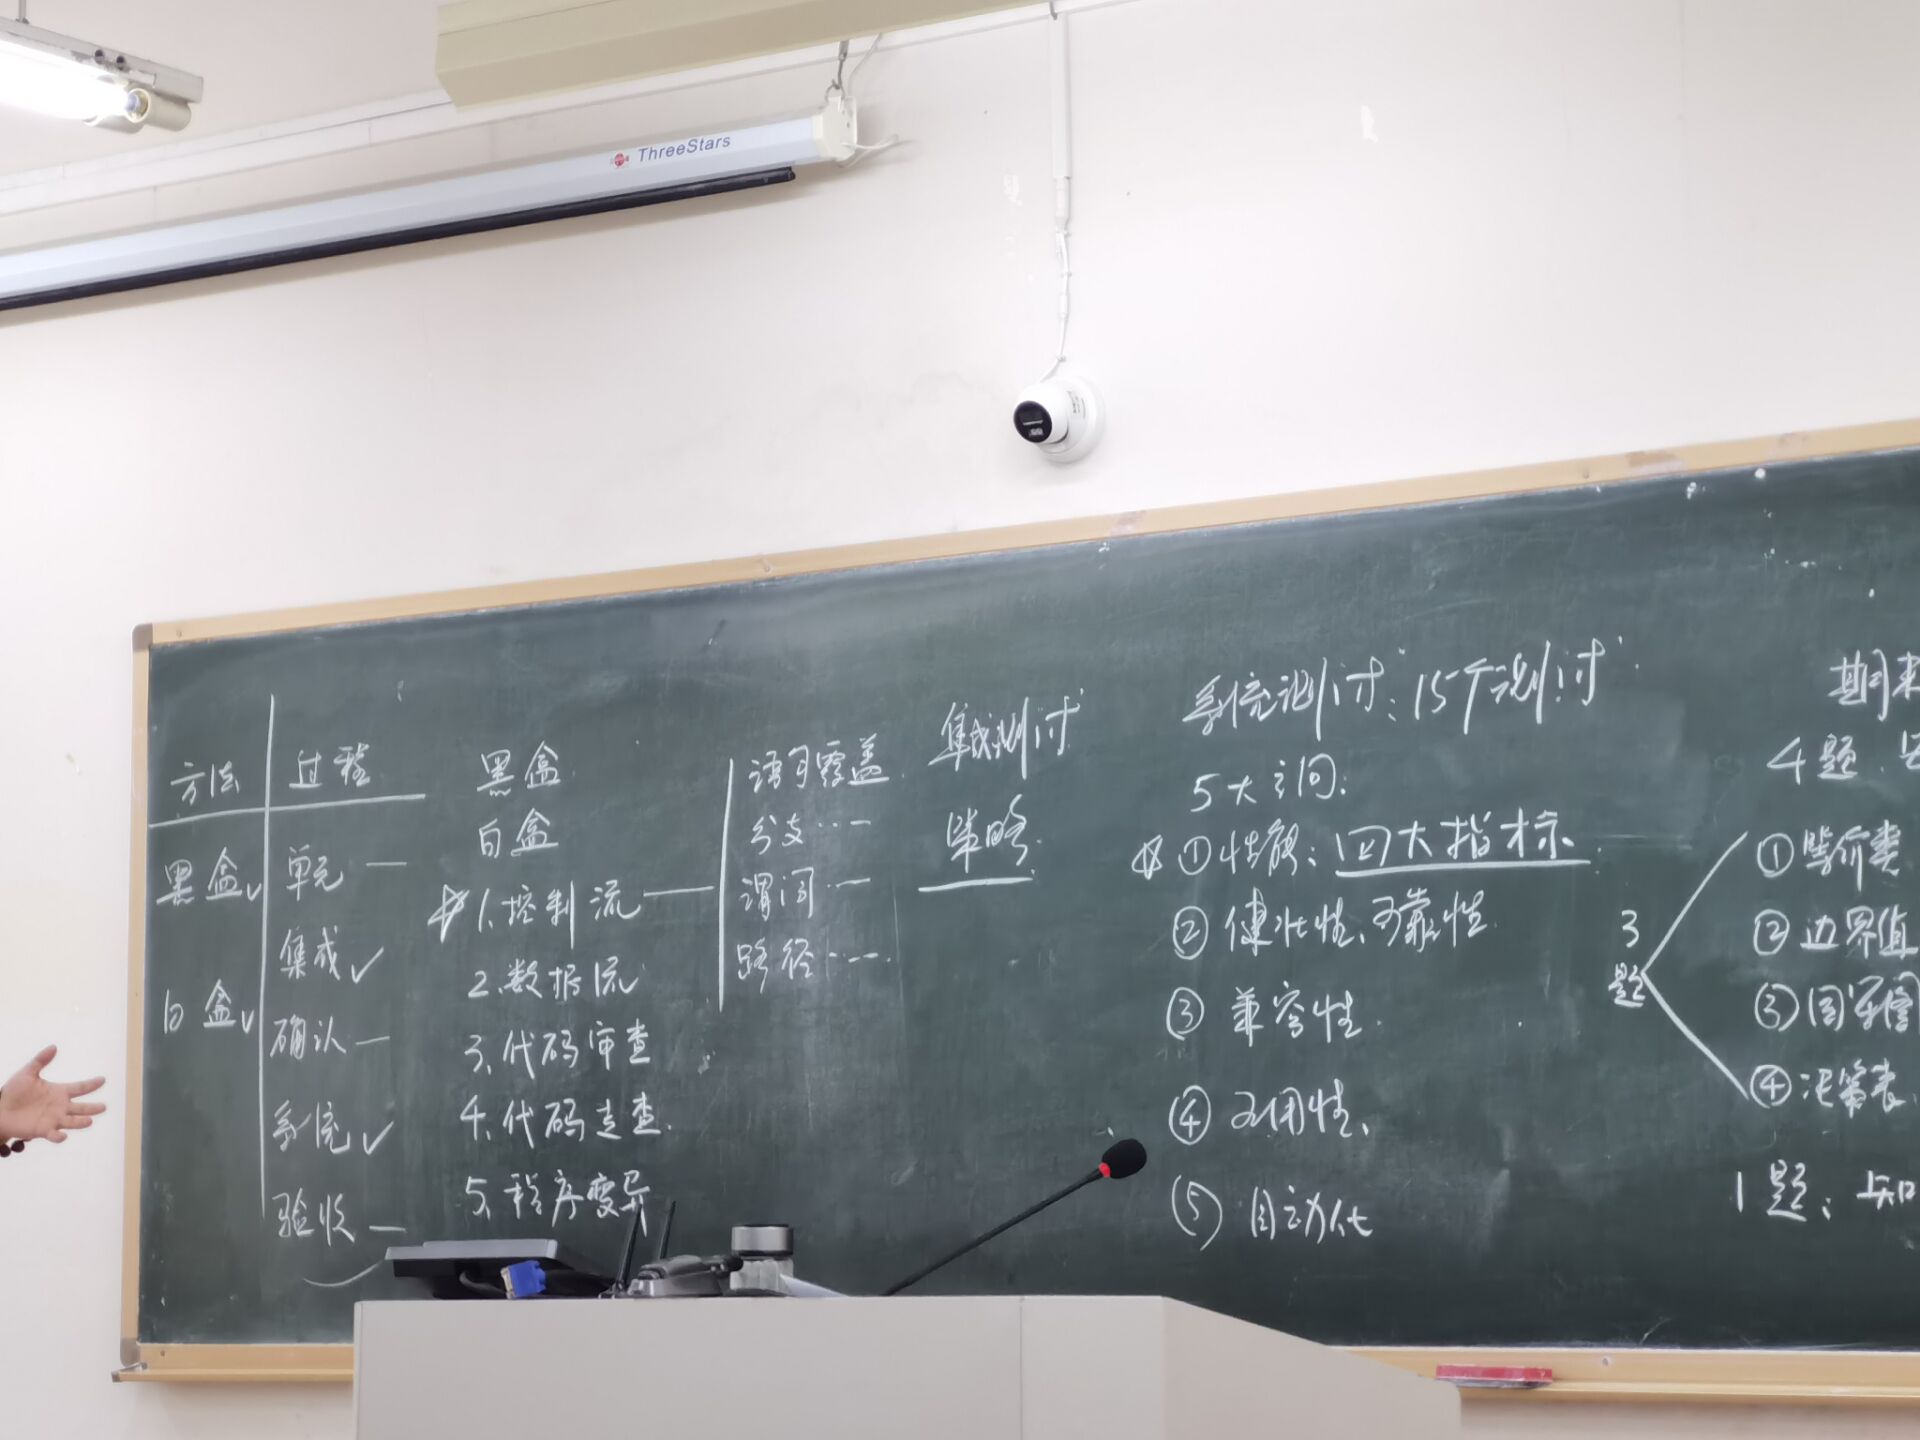 ThreeStars
方法 过程
黑盒✓
白盒✓
单元 —
集成✓
确认 —
系统✓
验收 —
黑盒
白盒
☆ 1.控制流 —
2.数据流
3.代码审查
4.代码走查.
5.程序变异
语句覆盖
分支……
谓词……
路径……
集成测试
策略.
系统测试:15个测试
5大方向:
☆ ①性能:四大指标.
②健壮性、可靠性.
③兼容性.
④可用性、
⑤自动化
期末
4题.
3题
①等价类
②边界值
③因果图
④决策表.
1题:知